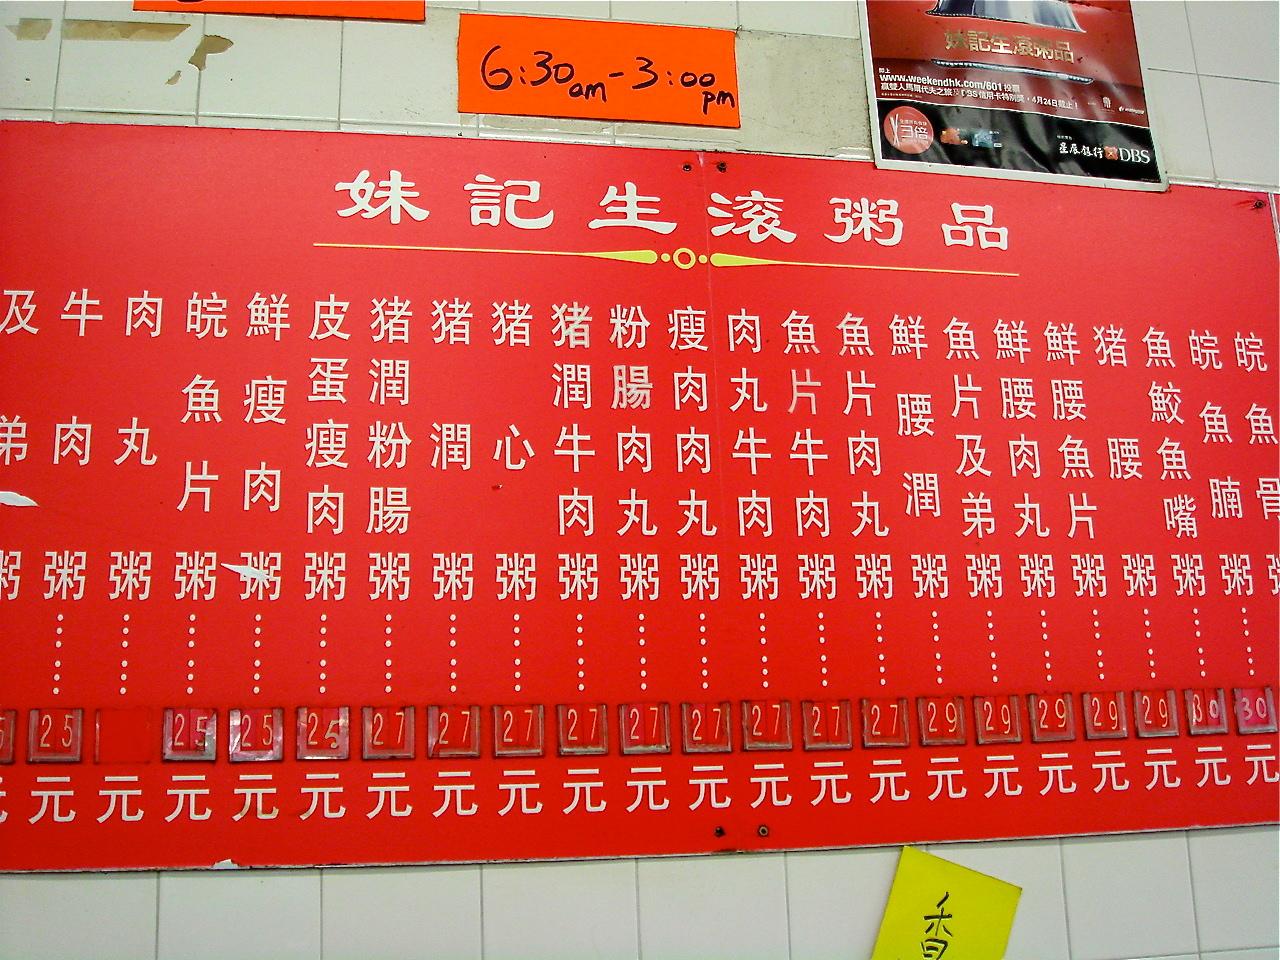 6:30am-3:00pm
妹記生滾粥品
www.weekendhk.com/601 投票
贏雙人馬爾代夫之旅及DBS信用卡特別獎,4月24日截止!
3倍
星展銀行 DBS
妹記生滾粥品
及弟粥
牛肉粥……25元
肉丸粥……元
皖魚片粥……25元
鮮瘦肉粥……25元
皮蛋瘦肉粥……25元
猪潤粉腸粥……27元
猪潤粥……27元
猪心粥……27元
猪潤牛肉粥……27元
粉腸肉丸粥……27元
瘦肉肉丸粥……27元
肉丸牛肉粥……27元
魚片牛肉粥……27元
魚片肉丸粥……27元
鮮腰潤粥……29元
魚片及弟粥……29元
鮮腰肉丸粥……29元
鮮腰魚片粥……29元
猪腰粥……29元
魚鮫魚嘴粥……30元
皖魚腩粥……30元
皖魚骨
香